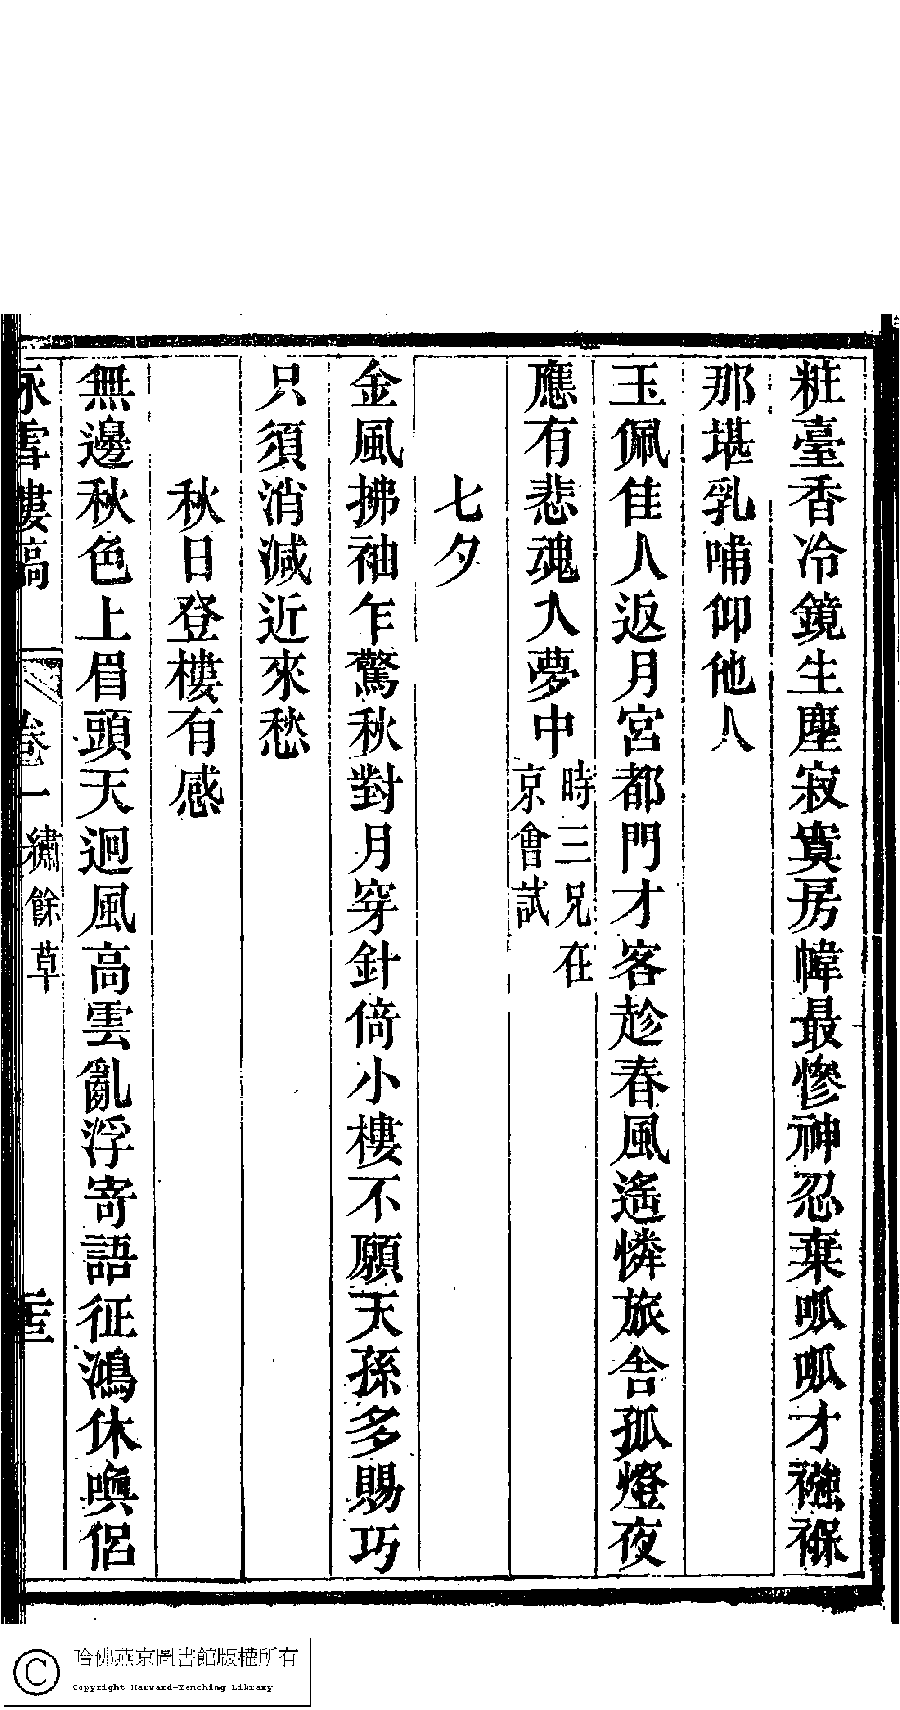 粧臺香冷鏡生塵寂寞房幃最慘神忍棄呱呱才襁褓
那堪乳哺仰他人
玉佩佳人返月宮都門才客趁春風遙憐旅舍孤燈夜
應有悲魂入夢中時三兄在京會試
七夕
金風拂袖乍驚秋對月穿針倚小樓不願天孫多賜巧
只須消減近來愁
秋日登樓有感
無邊秋色上眉頭天迥風高雲亂浮寄語征鴻休喚侶
雪樓稿 卷一 繡餘草
哈佛燕京圖書館版權所有
Copyright Harvard-Yenching Library